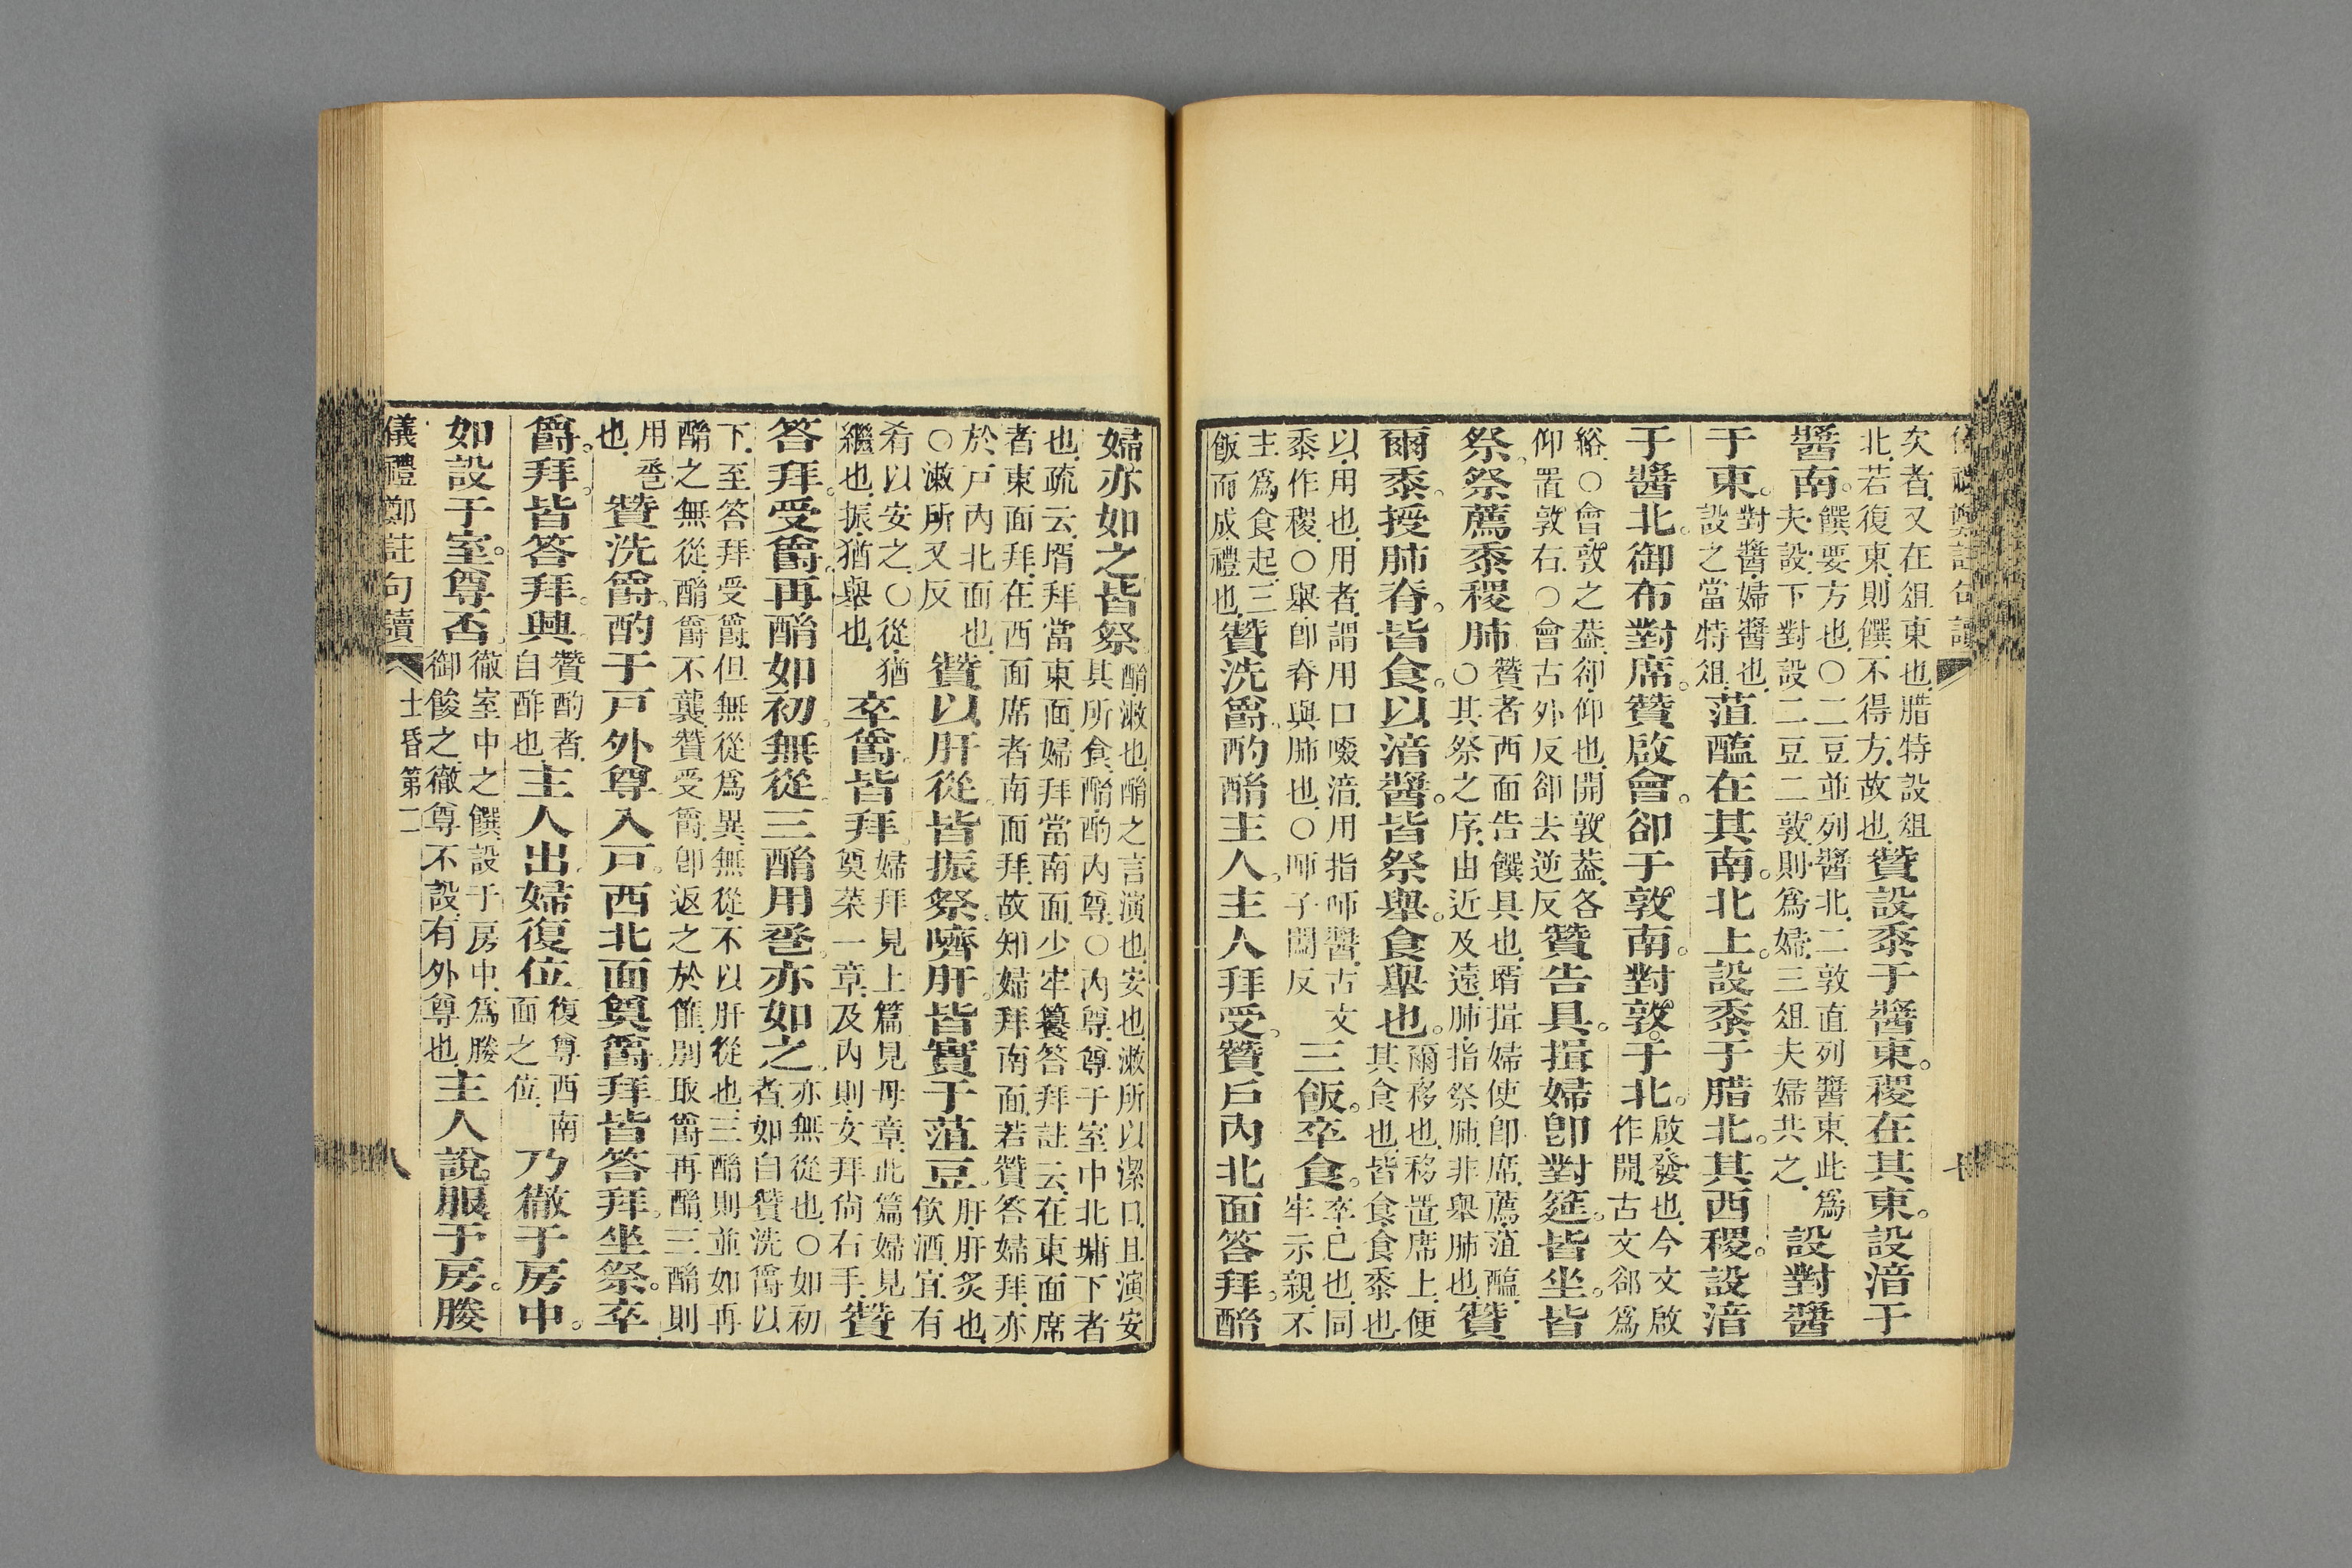 儀禮鄭註句讀
矣者又在俎東也腊特設俎北若復東則饌不得方故也贊設黍于醬東。稷在其東。設湆于
醬南。饌要方也○二豆並列醬北二敦直列醬東此爲夫設下對設二豆二敦則爲婦三俎夫婦共之設對醬
于東。對醬婦醬也設之當特俎菹醢在其南。北上。設黍于腊北。其西稷。設湆
于醬北。御布對席。贊啟會。卻于敦南。對敦于北。啟發也今文啟作開古文郤爲
綌○會敦之葢卻仰也開敦葢各仰置敦右○會古外反卻去逆反贊告具。揖婦卽對筵。皆坐。皆
祭。祭薦黍稷肺贊者西面告饌具也壻揖婦使卽席薦菹醢○其祭之序由近及遠肺指祭肺非舉肺也贊
爾黍。授肺脊。皆食。以湆醬。皆祭舉。食舉也。爾移也移置席上便其食也皆食食黍也
以用也用者謂用口啜湆用指㕠醬古文黍作稷○舉卽脊與肺也○㕠子闔反三飯。卒食。卒已也同牢示親不
主爲食起三飯而成禮也贊洗爵。酌酳主人。主人拜受。贊戶內北面答拜。酳
婦亦如之皆祭酳漱也酳之言演也安也漱所以潔口且演安其所食酳酌內尊○內尊尊于室中北墉下者
也疏云壻拜當東面婦拜當南面少牢䉵答拜註云在東面席者東面拜在西面席者南面拜故知婦拜南面若贊答婦拜亦
於戶內北面也○漱所又反贊以肝從。皆振祭。嚌肝。皆實于菹豆。肝肝炙也飲酒宜有
肴以安之○從猶繼也振猶舉也卒爵。皆拜。婦拜見上篇見母章此篇婦見奠菜一章及內則女拜尚右手贊
答拜。受爵。再酳如初。無從。三酳用巹。亦如之。亦無從也○如初者如自贊洗爵以
下至答拜受爵但無從爲異無從不以肝從也三酳則並如再酳之無從酳爵不襲贊受爵卽返之於篚別取爵再酳三酳則
用巹也贊洗爵。酌于戶外尊入戶。西北面奠爵拜皆答拜。坐祭。卒
爵。拜。皆答拜。興。贊酌者自酢也主人出。婦復位。復尊西南面之位乃徹于房中。
如設于室。尊否。徹室中之饌設于房中爲媵御餕之徹尊不設有外尊也主人說服于房。媵
儀禮鄭註句讀 士昏第二 八